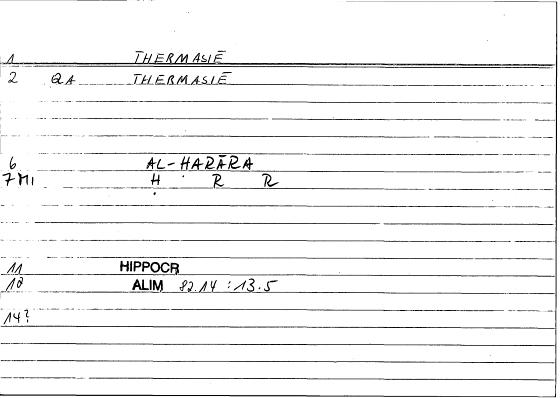 1 THERMASIĒ
2 QA THERMASIĒ
6 AL-ḤARĀRA
7 MI Ḥ R R
11 HIPPOCR
18 ALIM 82.14 : 13.5
14?